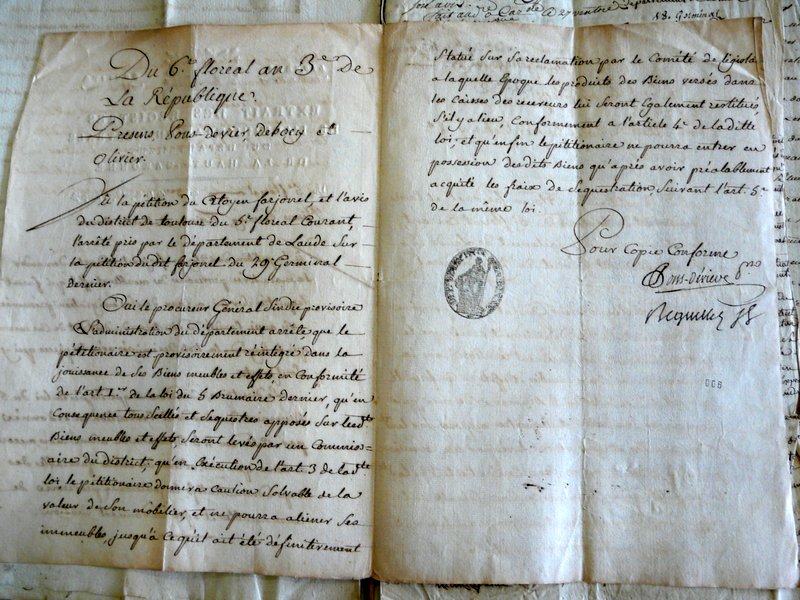 Du 6e. floréal an 3e. de
La République.
Présens Pons-devier, debocy et
olivier.
Vu la pétition du Citoyen farjonel, et l'avis
du district de toulouse du 5e. floreal Courant,
l'arrêté pris par le département de Laude Sur
la pétition du dit farjonel du 29 Germinal
dernier.
Oui le procureur Général Sindic provisoire
L'administration du département arrête, que le
pétitionaire est provisoirement réintégré dans la
jouissance de Ses Biens meubles et effets, en Conformité
de l'art 1er. de la loi du 5 Brumaire dernier, qu'en
Consequence tous Scellés et Sequestres apposés Sur lesdts
Biens meubles et effets Seront levés par un Commiss-
aire du district; qu'en Exécution de l'art. 3 de la dte
loi, le pétitionaire donnera Caution Solvable de la
valeur de Son mobilier, et ne pourra aliener Ses
immeubles, jusqu'à Ce qu'il ait été définitivement
Statué Sur Sa reclamation par le Comité de législa
a laquelle Epoque les produits des Biens versés dans
les Caisses des receveurs lui Seront Egalement restitués
S'il y a lieu, Conformement a l'article 4e. de la ditte
loi; et qu'enfin le pétitionaire ne pourra entrer en
possession des dits Biens qu'après avoir préalablement
acquité les fraix de Sequestration, Suivant l'art. 5e.
de la même loi.
Pour Copie Conforme
Pons-devier
008
18. Germinal